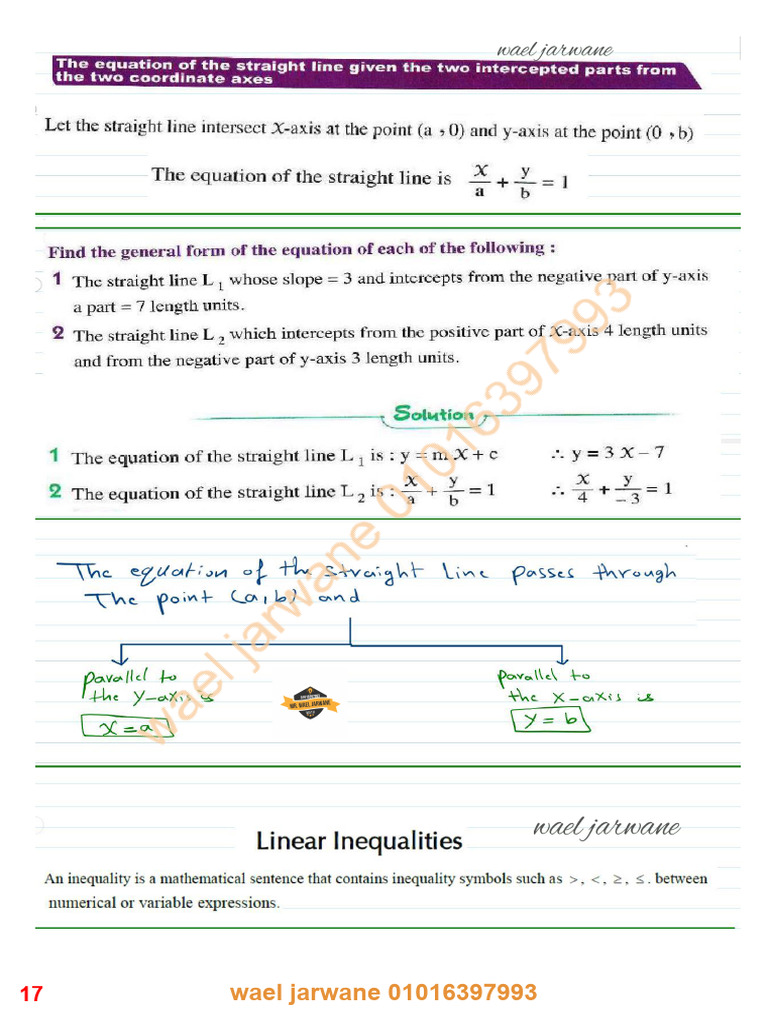 wael jarwane
The equation of the straight line given the two intercepted parts from
the two coordinate axes
Let the straight line intersect X-axis at the point (a , 0) and y-axis at the point (0 , b)
The equation of the straight line is x/a + y/b = 1
Find the general form of the equation of each of the following :
1 The straight line L 1 whose slope = 3 and intercepts from the negative part of y-axis
a part = 7 length units.
2 The straight line L 2 which intercepts from the positive part of X-axis 4 length units
and from the negative part of y-axis 3 length units.
Solution
1 The equation of the straight line L 1 is : y = m X + c ∴ y = 3 X – 7
2 The equation of the straight line L 2 is : x/a + y/b = 1 ∴ x/4 + y/–3 = 1
The equation of the straight line passes through
The point (a,b) and
parallel to
the y-axis is
x = a
parallel to
the x-axis is
y = b
MR. WAEL JARWANE
wael jarwane 01016397993
Linear Inequalities
wael jarwane
An inequality is a mathematical sentence that contains inequality symbols such as >, <, ≥, ≤. between
numerical or variable expressions.
17
wael jarwane 01016397993